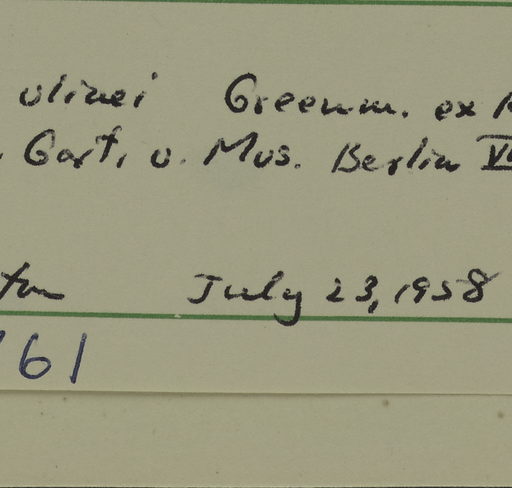 ulinei Greenm. ex
Gart. u. Mus. Berlin
July 23, 1958
61